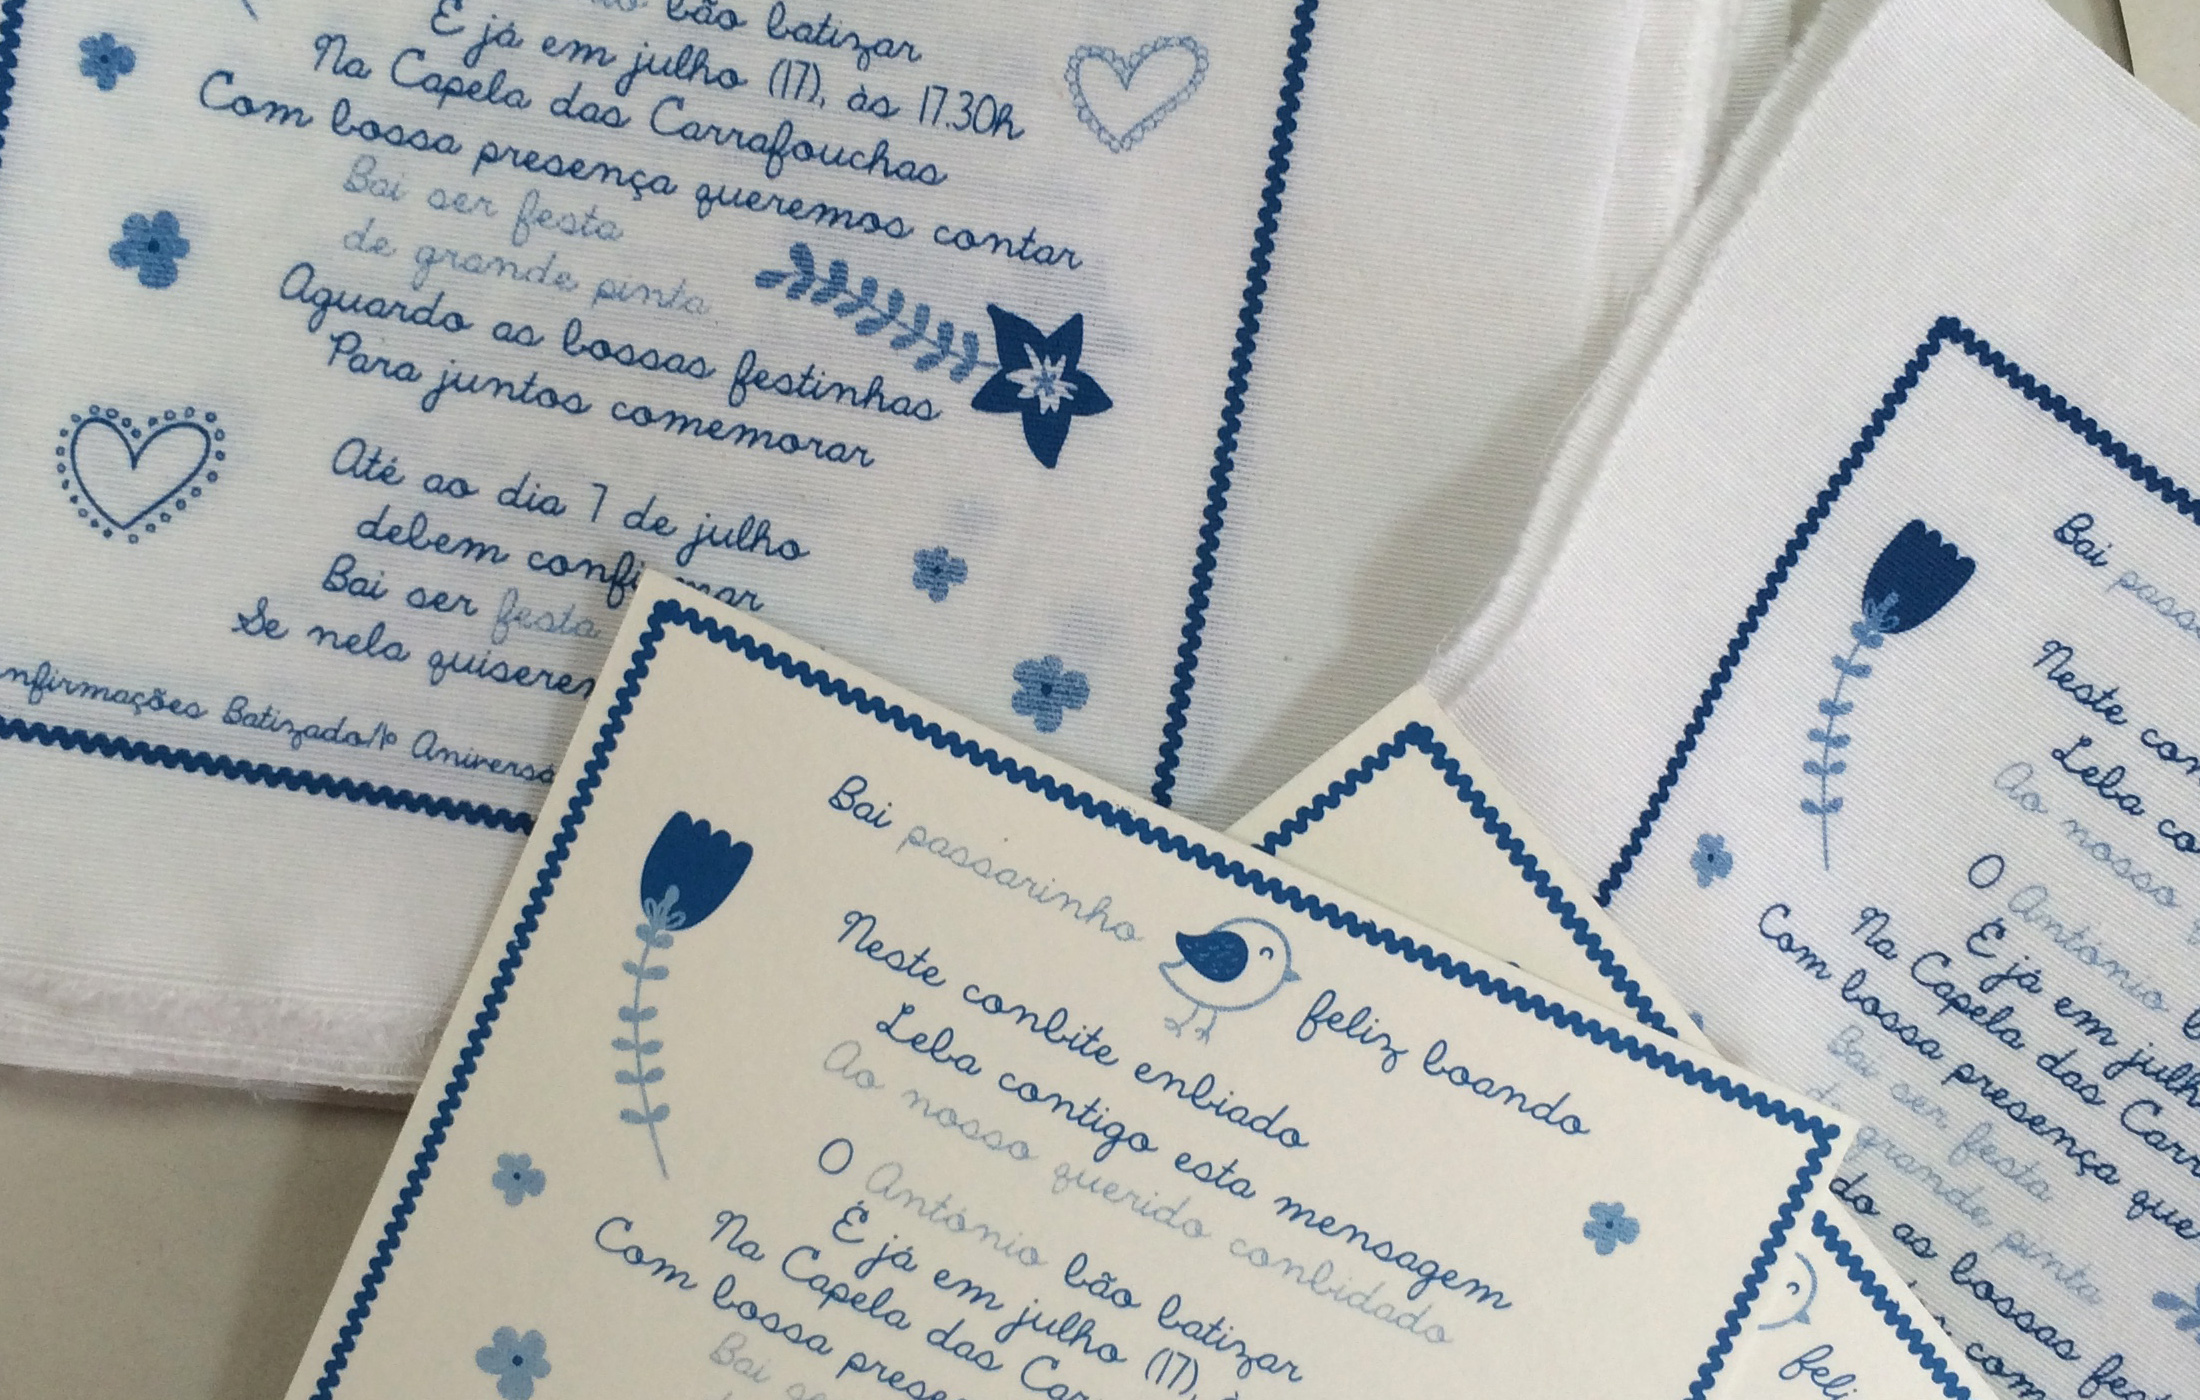 bão batizar
É já em julho (17), às 17.30h
Na Capela das Carrafouchas
Com bossa presença queremos contar
Bai ser festa
de grande pinta
Aguardo as bossas festinhas
Para juntos comemorar
Até ao dia 7 de julho
debem confirmar
Bai ser festa
Se nela quiserem
nfirmações Batizado/1º Aniversá
Bai passarinho feliz boando
Neste conbite enbiado
Leba contigo esta mensagem
Ao nosso querido conbidado
O António bão batizar
É já em julho (17),
Na Capela das Car
Com bossa prese
Bai se
Bai pass
Neste con
Leba co
Ao nosso
O António b
É já em julh
Na Capela das Carr
Com bossa presença que
Bai ser festa
grande pinta
do as bossas fes
com
feli